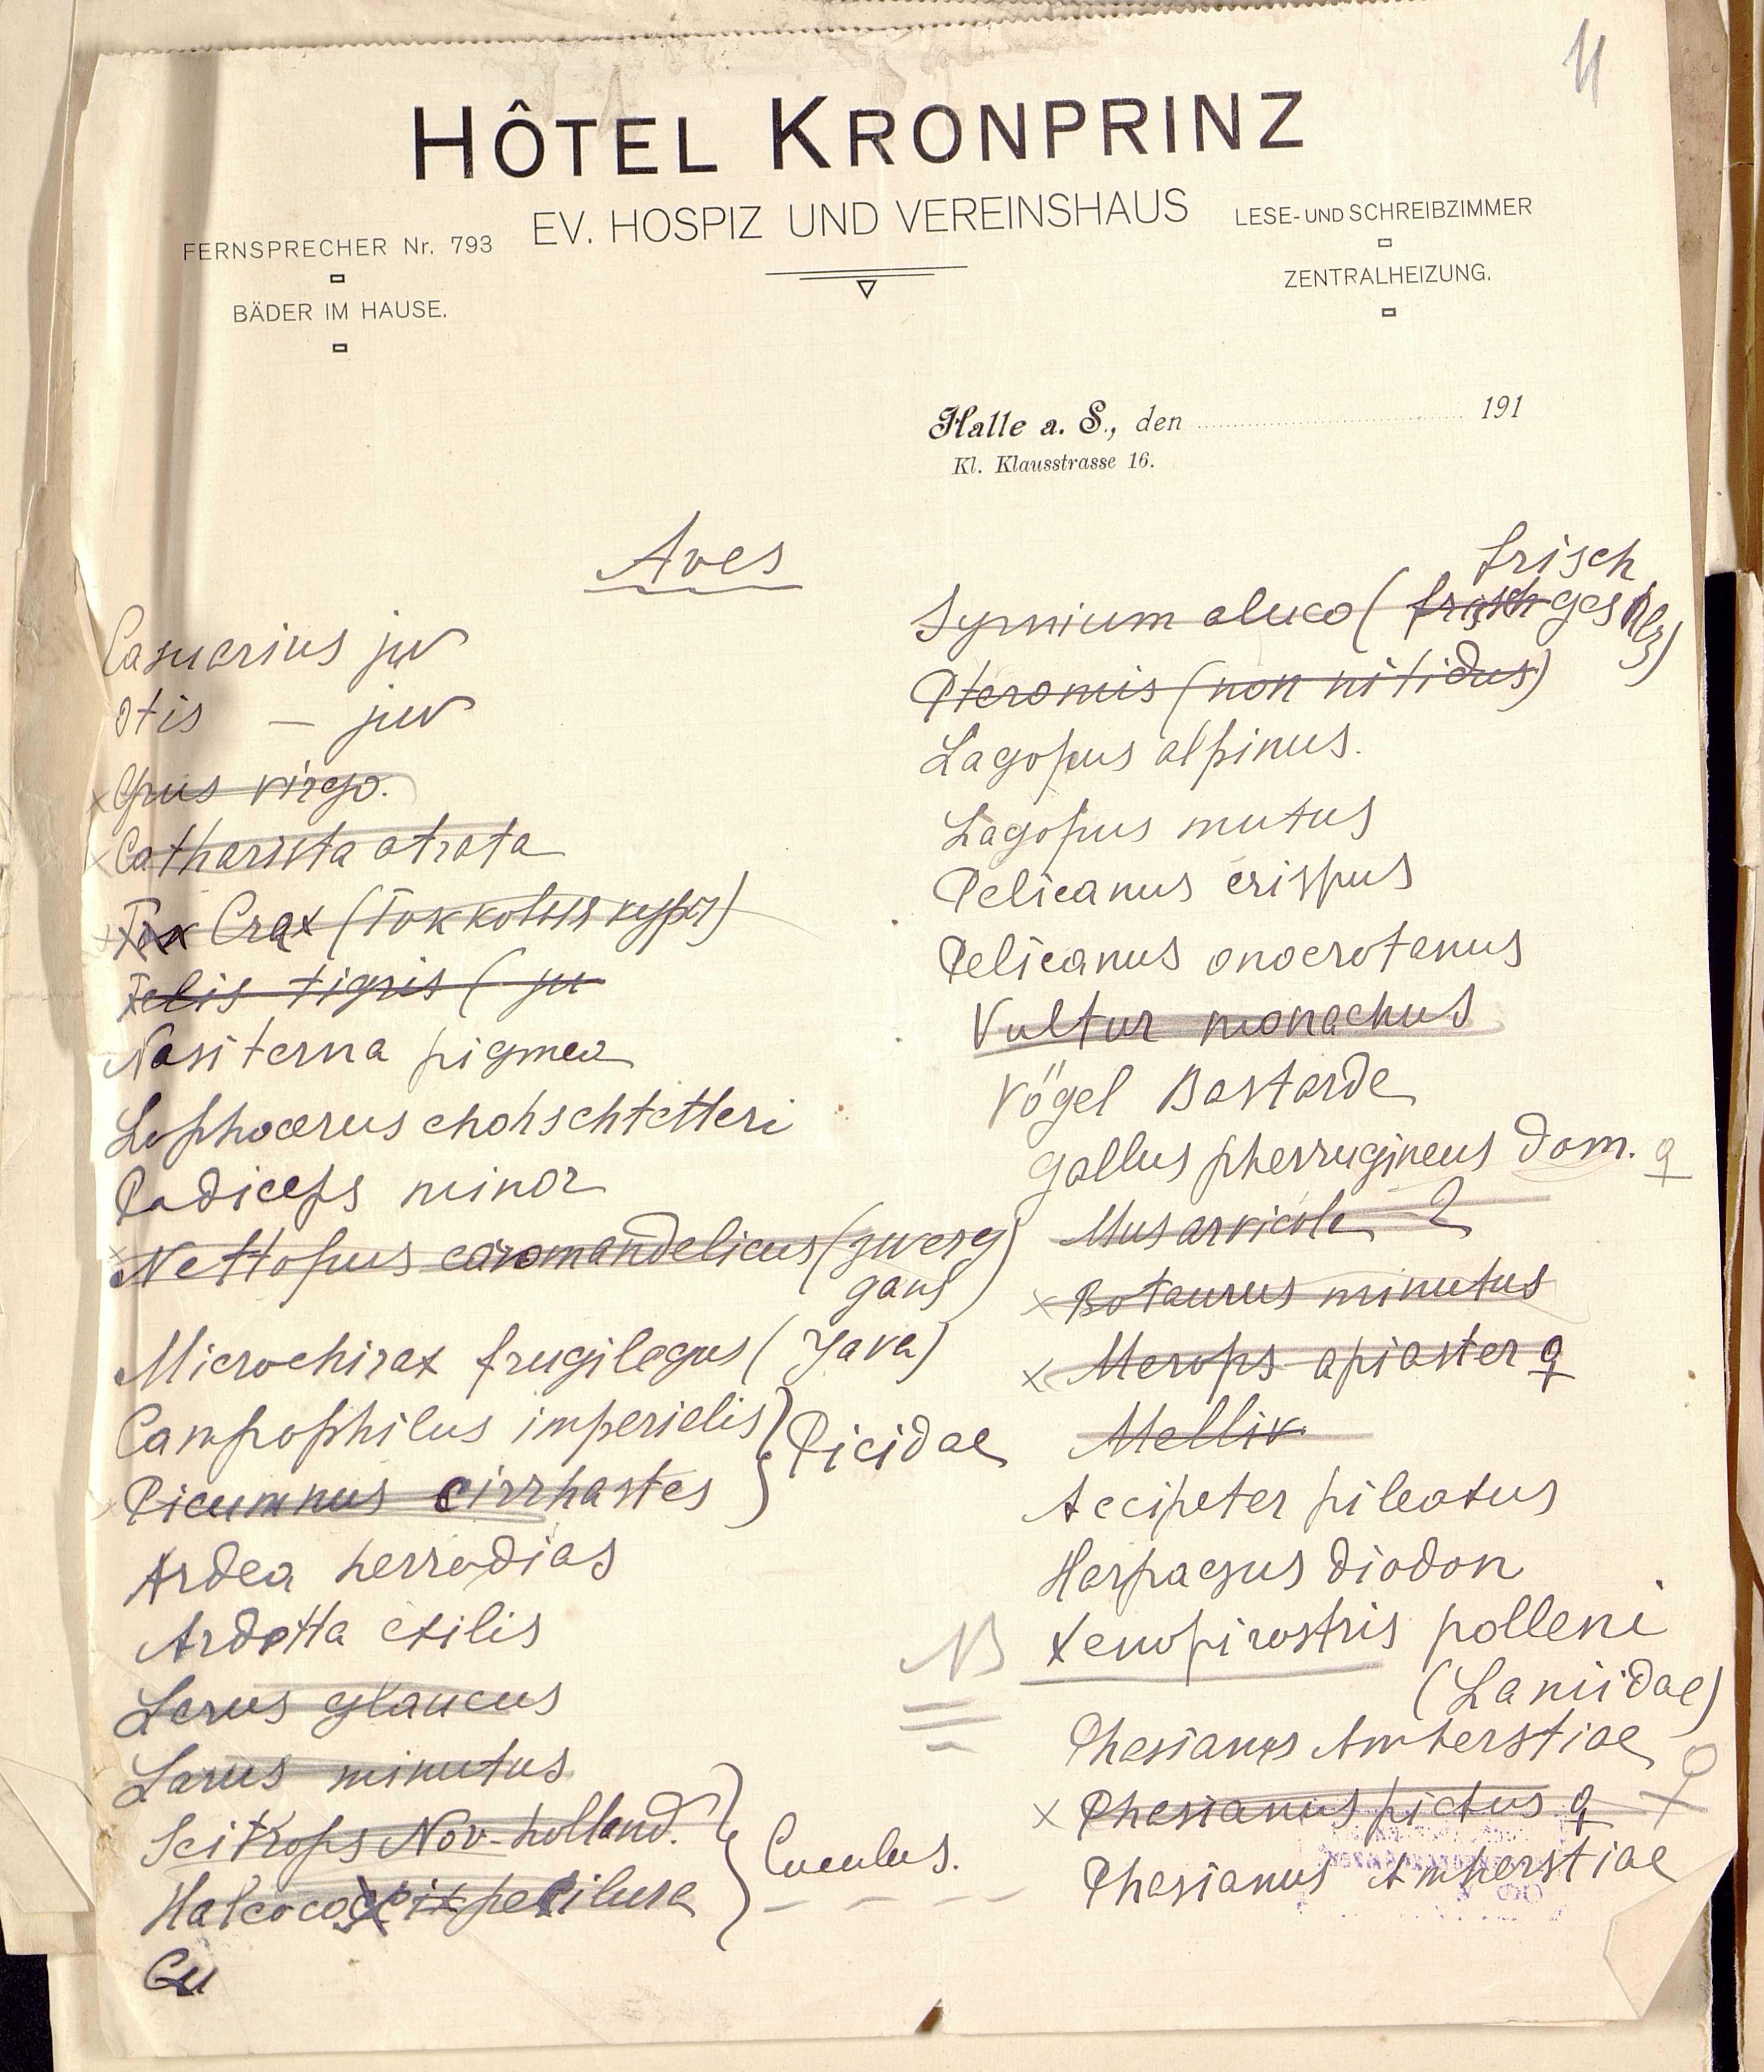 11
HÔTEL KRONPRINZ
EV. HOSPIZ UND VEREINSHAUS
FERNSPRECHER Nr. 793
BÄDER IM HAUSE.
LESE- UND SCHREIBZIMMER
ZENTRALHEIZUNG.
Halle a. S., den 191
Kl. Klausstrasse 16.
Aves
Casuarius juv
Otis — juv
x Grus virgo.
x Catharista atrata
x Crax (Tokkolus
Felis tigris (ju
Nasiterna pigmea
Lophocerus chohschtetteri
Podiceps minor
x Nettopus coromandelicus (zwerg
gans)
Microhirax frugilegus (Java)
Campophilus imperialis
Picumnus cirrhastes
} Picidae
Ardea herrodias
Ardetta exilis
Larus glaucus
Larus minutus
Scitrops Nov-holland.
} Cuculus.
Cu
frisch
Syrnium aluco (frisch
Pteromis (non nitidus)
Lagopus alpinus.
Lagopus mutus
Pelicanus crispus
Pelicanus onocrotanus
Vultur monachus
Vögel Bastarde
Gallus pherrugineus dom. ♀
Mus arvicola 2
x Botaurus minutus
x Merops apiaster ♀
Melliv
Accipeter pileatus
Harpagus diodon
NB Xenopirostris polleni
(Laniidae)
Phasianus Amherstiae ♀
x Phasianus pictus ♀
Phasianus Amherstiae